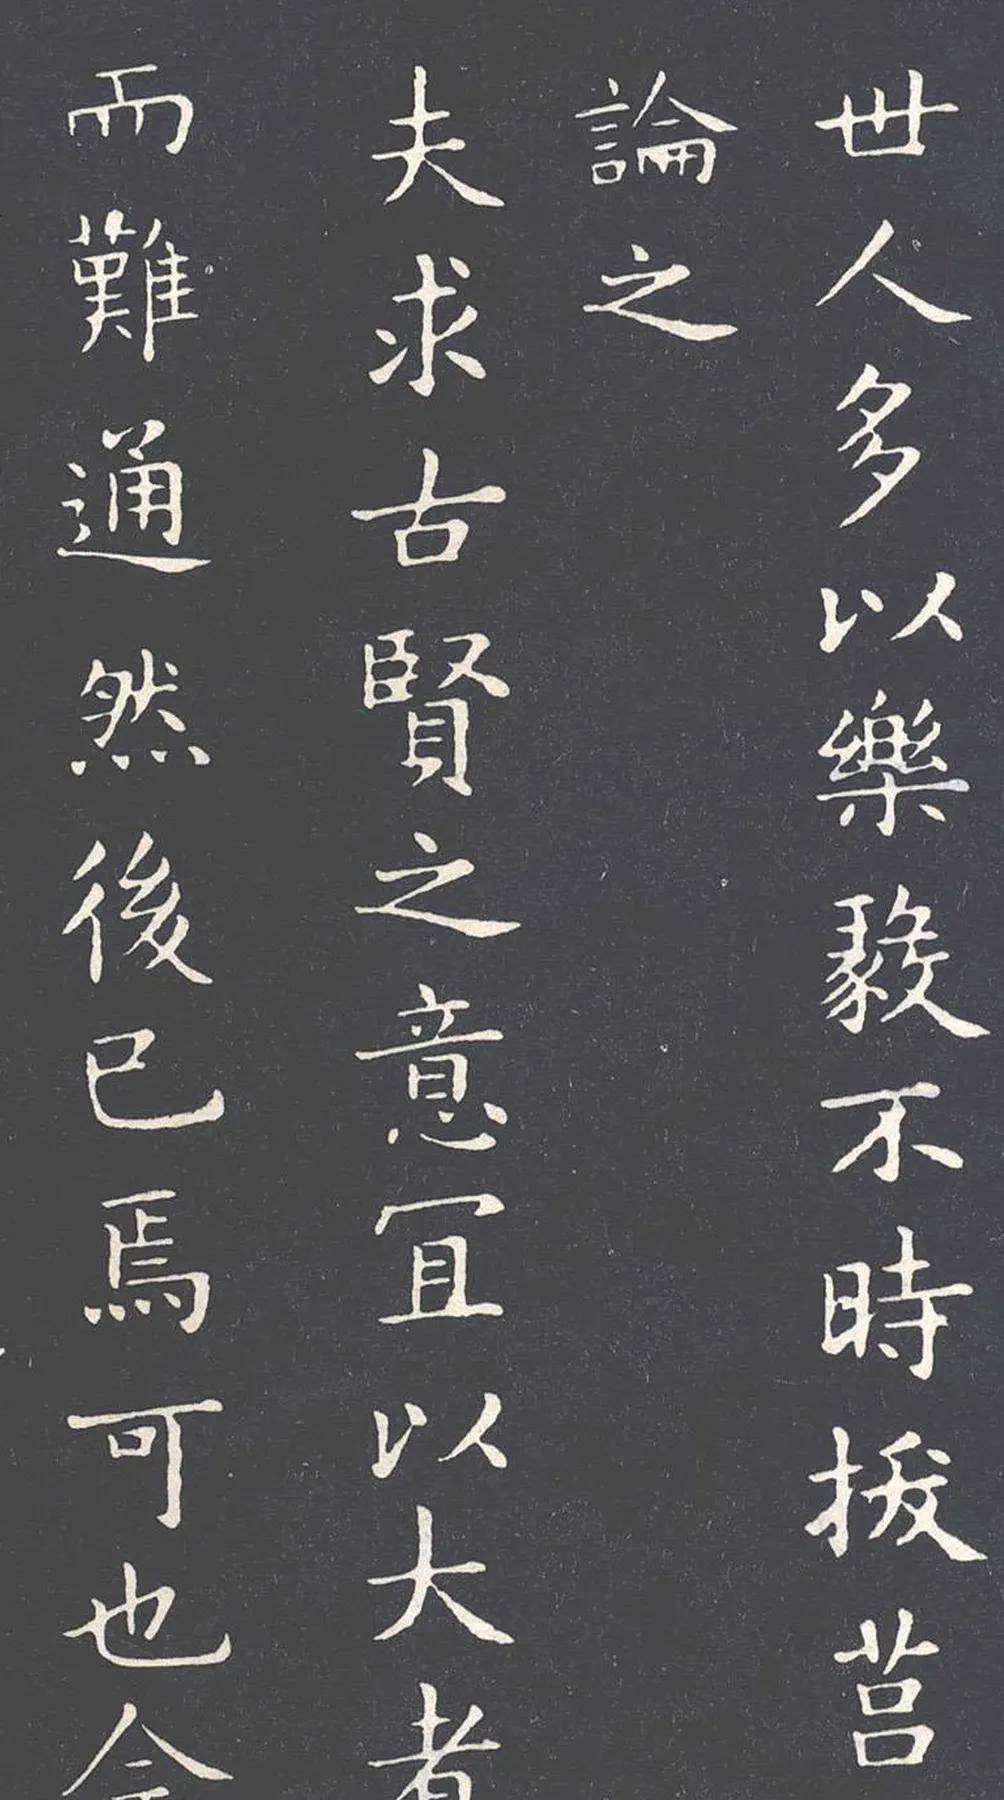 世人多以樂毅不時拔莒
論之
夫求古賢之意宜以大者
而難通然後已焉可也今